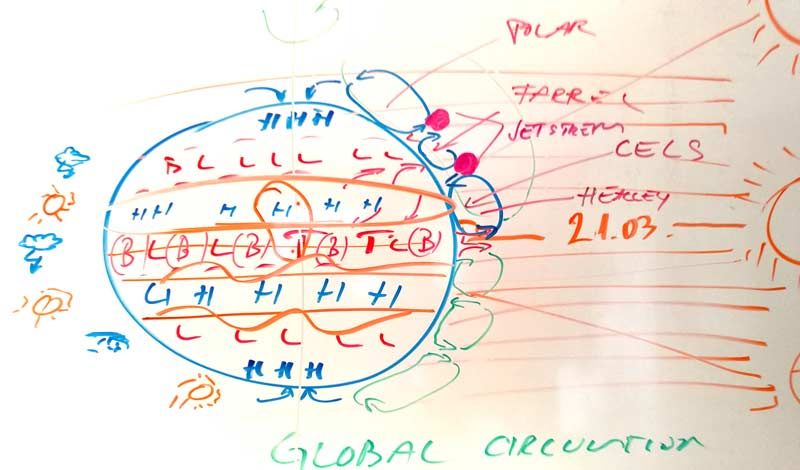 POLAR
FARREL
JETSTREM
CELS
HEXLEY
21.03.
H H H
B L L L L L L
H H H H H H
(B) L (B) L (B) T (B) T L (B)
H H H H H
L L L L L
H H H
GLOBAL CIRCULATION